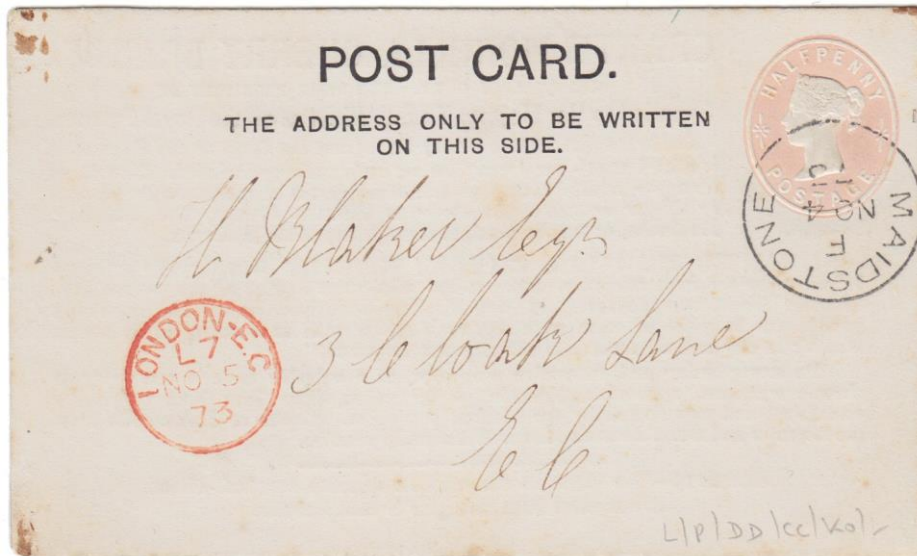 POST CARD.
THE ADDRESS ONLY TO BE WRITTEN
ON THIS SIDE.
HALFPENNY
POSTAGE
MAIDSTONE
F
NO 4
H Blaker Esqr
3 Cloak Lane
E C
LONDON-E.C
L7
NO 5
73
L/P/DD/CC/KO/-